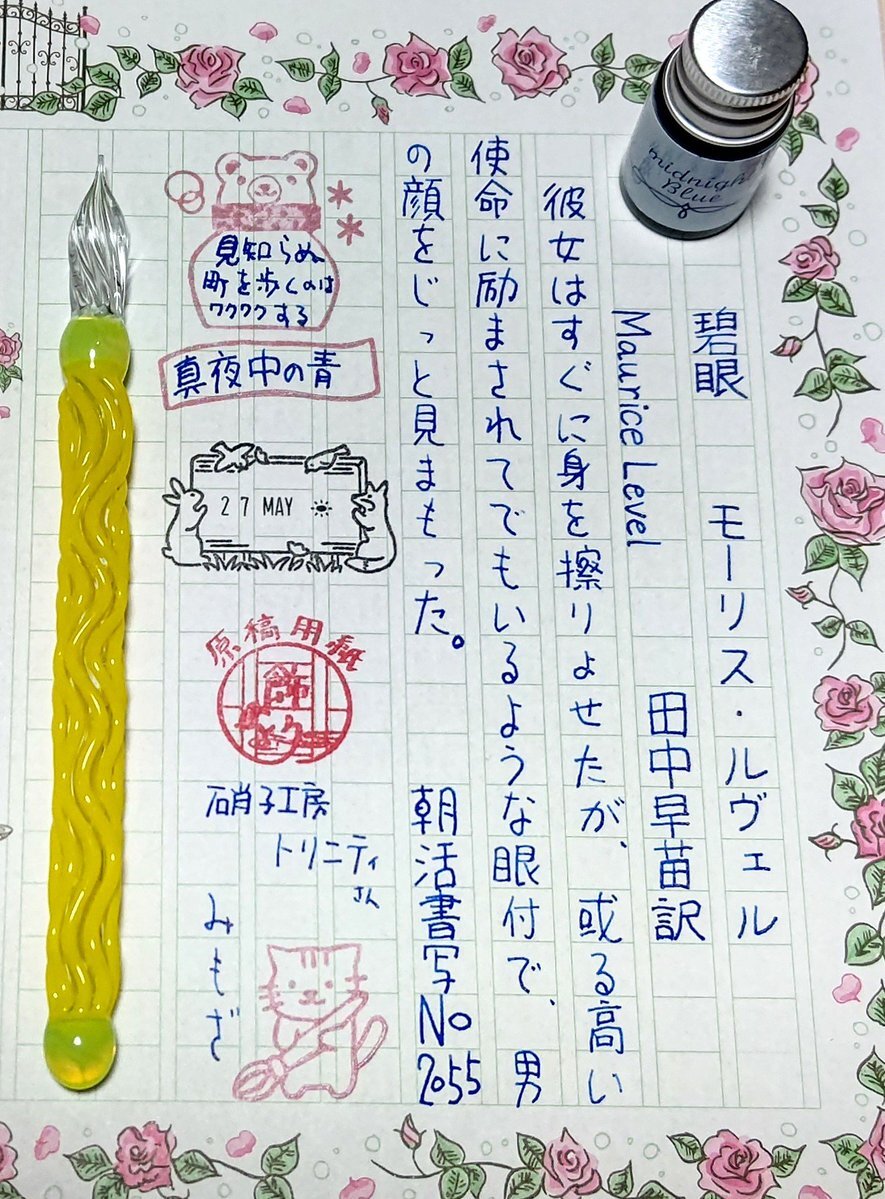 碧眼 モーリス・ルヴェル
Maurice Level
田中早苗訳
彼女はすぐに身を擦りよせたが、或る高い
使命に励まされてでもいるような眼付で、男
の顔をじっと見まもった。
朝活書写No
2055
見知らぬ
町を歩くのは
ワクワクする
真夜中の青
27 MAY
原稿用紙
飾り
硝子工房
トリニティ
さん
みもざ
midnight
Blue